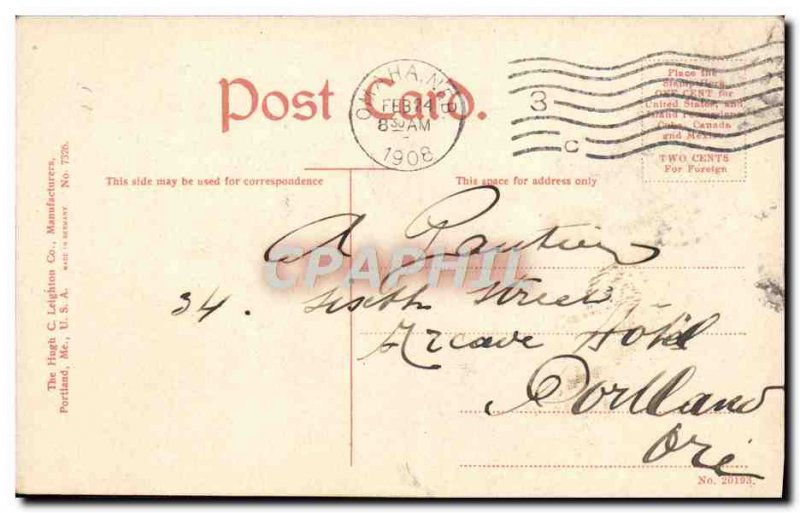 Post Card.
OMAHA, NEB
FEB 24
8 30 AM
1908
3
C
Place the
Stamp Here
ONE CENT for
United States, and
Cuba, Canada
and Mexico
TWO CENTS
For Foreign
This side may be used for correspondence
This space for address only
The Hugh C. Leighton Co., Manufacturers,
Portland, Me., U. S. A. MADE IN GERMANY No. 7326.
CPAPHIL
A Gautier
34. Sixth Street
Hotel
Portland
Ore
No. 20193.